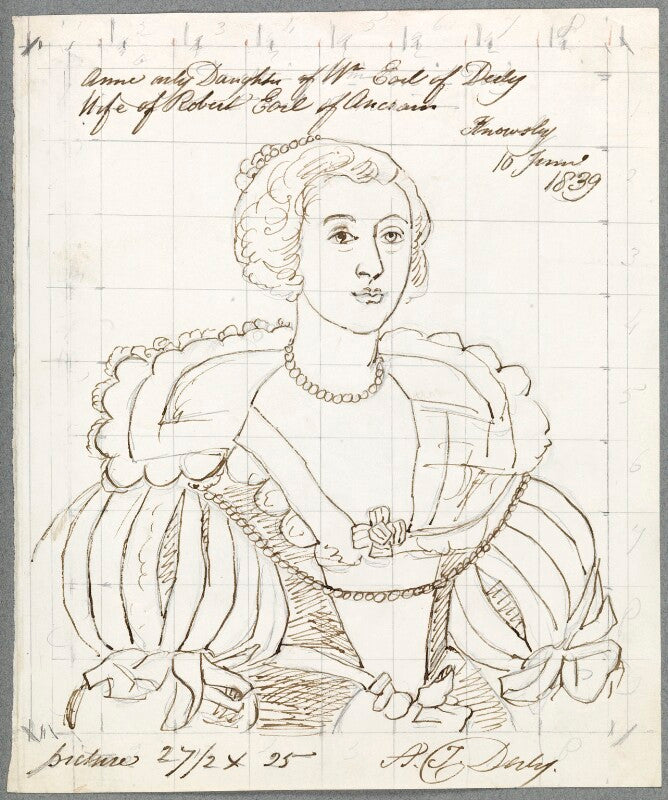 Anne only Daughter of Wm Earl of Derby
Wife of Robert Earl of Ancram
Knowsly
10 June
1839
picture 27 1/2 x 25
Derby.